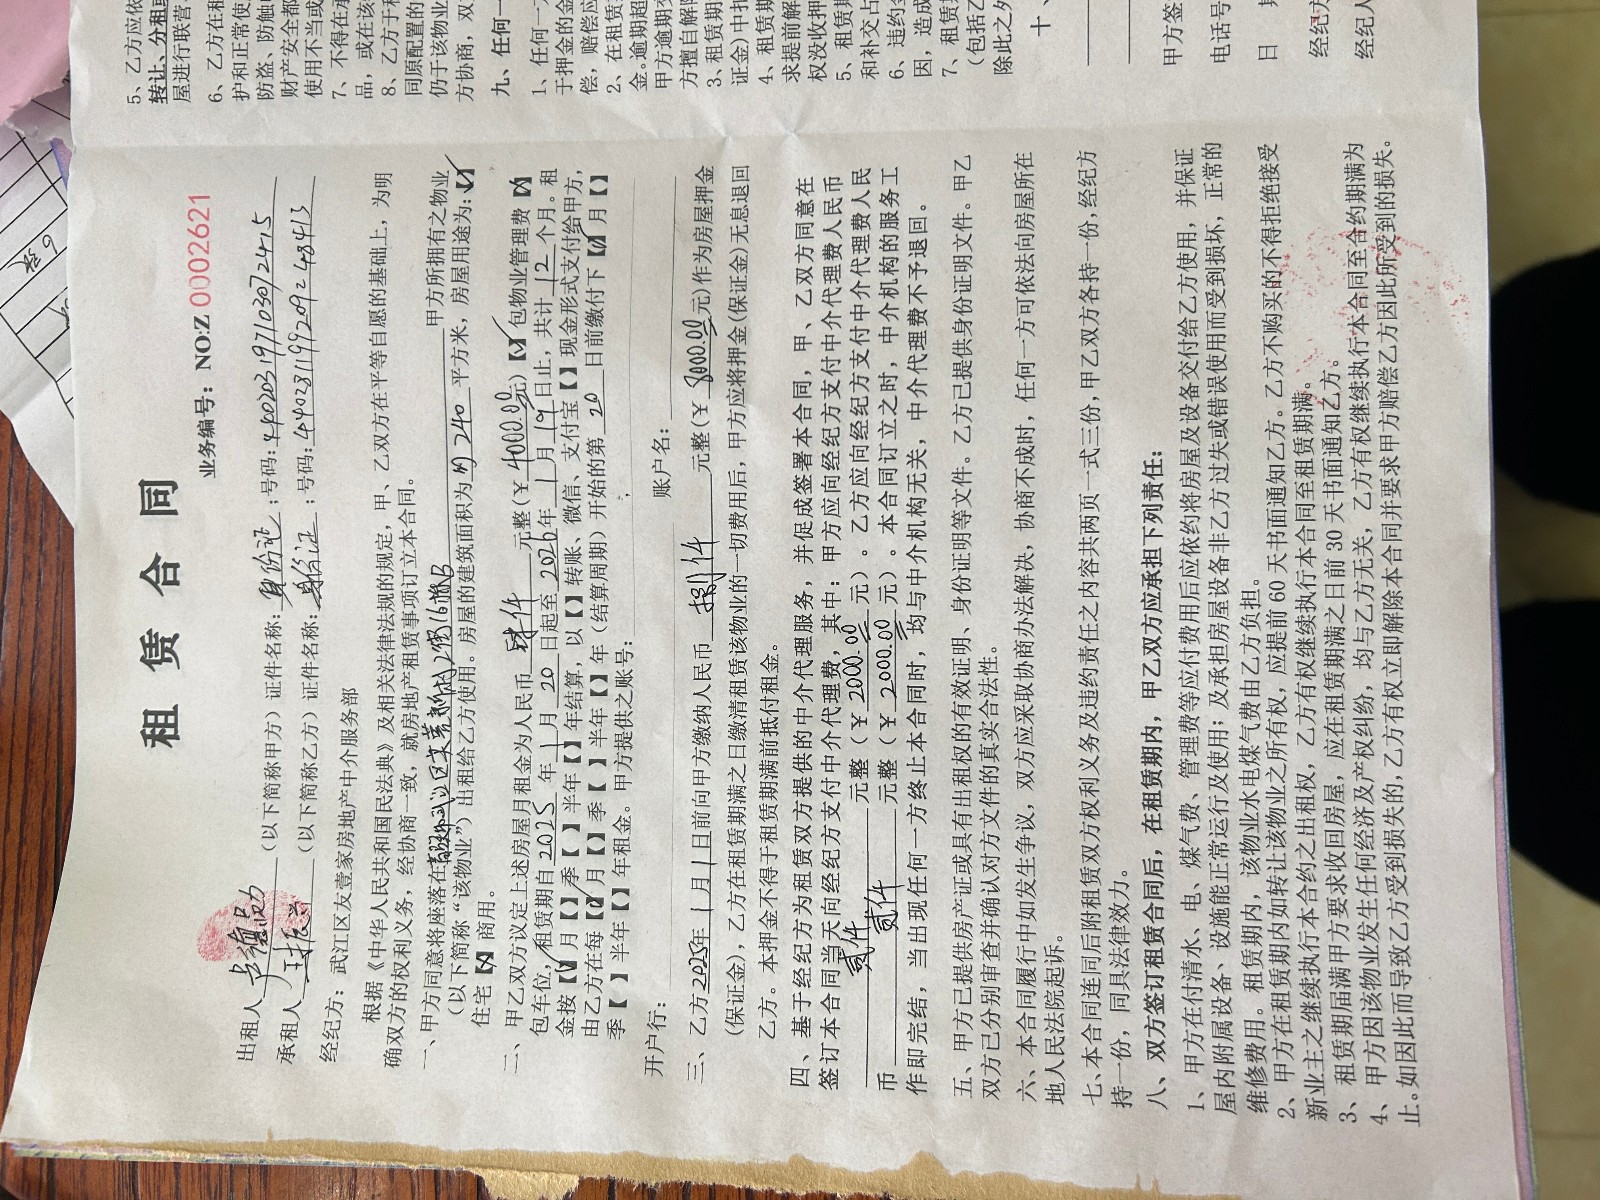 租 赁 合 同
业务编号：NO:Z 0002621
出租人（以下简称甲方）证件名称：身份证；号码：440203197103072415
承租人（以下简称乙方）证件名称：身份证；号码：440281199209248413
经纪方：武江区友壹家房地产中介服务部
根据《中华人民共和国民法典》及相关法律法规的规定，甲、乙双方在平等自愿的基础上，为明
确双方的权利义务，经协商一致，就房地产租赁事项订立本合同。
一、甲方同意将座落在 甲方所拥有之物业
（以下简称“该物业”）出租给乙方使用。房屋的建筑面积为 约240 平方米，房屋用途为：【✓】
住宅【】商用。
二、甲乙双方议定上述房屋月租金为人民币 肆仟 元整（￥4000.00元）【✓】包物业管理费【】
包车位，租赁期自2025年1月20日起至2026年1月19日止，共计12个月。租
金按【✓】月【】季【】半年【】年结算，以【】转账、微信、支付宝【】现金形式支付给甲方，
由乙方在每【✓】月【】季【】半年【】年（结算周期）开始的第20日前缴付下【✓】月【】
季【】半年【】年租金。甲方提供之账号：
开户行： 账户名：
三、乙方2025年1月1日前向甲方缴纳人民币 捌仟 元整（￥8000.00元)作为房屋押金
(保证金)，乙方在租赁期满之日缴清租赁该物业的一切费用后，甲方应将押金(保证金)无息退回
乙方。本押金不得于租赁期满前抵付租金。
四、基于经纪方为租赁双方提供的中介代理服务，并促成签署本合同，甲、乙双方同意在
签订本合同当天向经纪方支付中介代理费，其中：甲方应向经纪方支付中介代理费人民币
贰仟 元整（￥2000.00元）。乙方应向经纪方支付中介代理费人民
币 贰仟 元整（￥2000.00元）。本合同订立之时，中介机构的服务工
作即完结，当出现任何一方终止本合同时，均与中介机构无关，中介代理费不予退回。
五、甲方已提供房产证或具有出租权的有效证明、身份证明等文件。乙方已提供身份证明文件。甲乙
双方已分别审查并确认对方文件的真实合法性。
六、本合同履行中如发生争议，双方应采取协商办法解决，协商不成时，任何一方可依法向房屋所在
地人民法院起诉。
七、本合同连同后附租赁双方权利义务及违约责任之内容共两页一式三份，甲乙双方各持一份，经纪方
持一份，同具法律效力。
八、双方签订租赁合同后，在租赁期内，甲乙双方应承担下列责任：
1、甲方在付清水、电、煤气费、管理费等应付费用后应依约将房屋及设备交付给乙方使用，并保证
屋内附属设备、设施能正常运行及使用；及承担房屋设备非乙方过失或错误使用而受到损坏，正常的
维修费用。租赁期内，该物业水电煤气费由乙方负担。
2、甲方在租赁期内如转让该物业之所有权，应提前 60 天书面通知乙方。乙方不购买的不得拒绝接受
新业主之继续执行本合约之出租权，乙方有权继续执行本合同至租赁期满。
3、租赁期届满甲方要求收回房屋，应在租赁期满之日前 30 天书面通知乙方。
4、甲方因该物业发生任何经济及产权纠纷，均与乙方无关，乙方有权继续执行本合同至合约期满为
止。如因此而导致乙方受到损失的，乙方有权立即解除本合同并要求甲方赔偿乙方因此所受到的损失。
5、乙方应依
转让、分租或
屋进行联营、
6、乙方在租
护和正常使
防盗、防触
财产安全都
使用不当或
7、不得在
品，或在该
8、乙方于
同原配置的
仍于该物业
方协商，双
九、任何一
1、任何一
于押金的金
偿，赔偿应
2、在租赁
金。逾期超
甲方逾期
方擅自解除
3、租赁期
证金）中
4、租赁期
求提前解
权没收押
5、租赁期
和补交占
6、违约
因，造成
7、租赁
（包括乙
除此之外
十、
甲方签
电话号
日 期
经纪方
经纪人